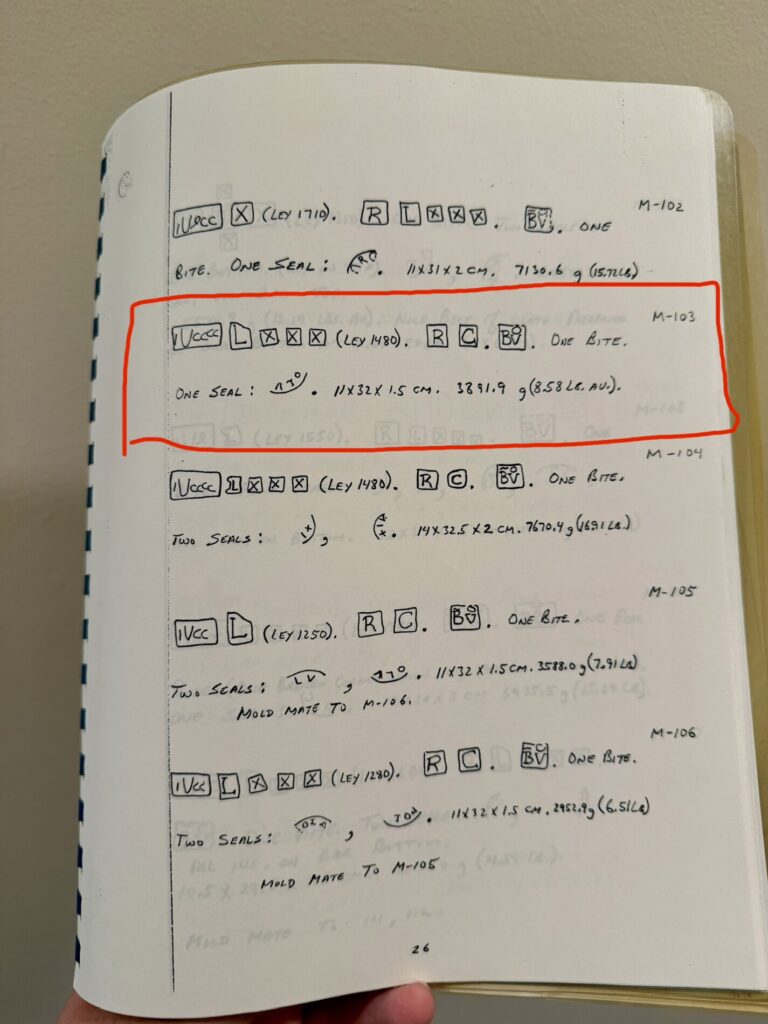 M-102
IVDCC X (LEY 1710). R L X X X. BV. ONE
BITE. ONE SEAL: . 11X31X2 CM. 7130.6 g (15.72LB)
M-103
IVCCCC L X X X (LEY 1480). R C. BV. ONE BITE.
ONE SEAL: . 11X32X1.5 CM. 3891.9 g (8.58 LB. AV.).
M-104
IVCCCC L X X X (LEY 1480). R C. BV. ONE BITE.
TWO SEALS: , . 14X32.5X2 CM. 7670.4 g (1691 LB.)
M-105
IVCC L (LEY 1250). R C. BV. ONE BITE.
TWO SEALS: LV, . 11X32X1.5 CM. 3588.0 g (7.91 LB)
MOLD MATE TO M-106.
M-106
IVCC L X X X (LEY 1280). R C. BV. ONE BITE.
TWO SEALS: , . 11X32X1.5 CM. 2952.9g (6.51LB)
MOLD MATE TO M-105
26